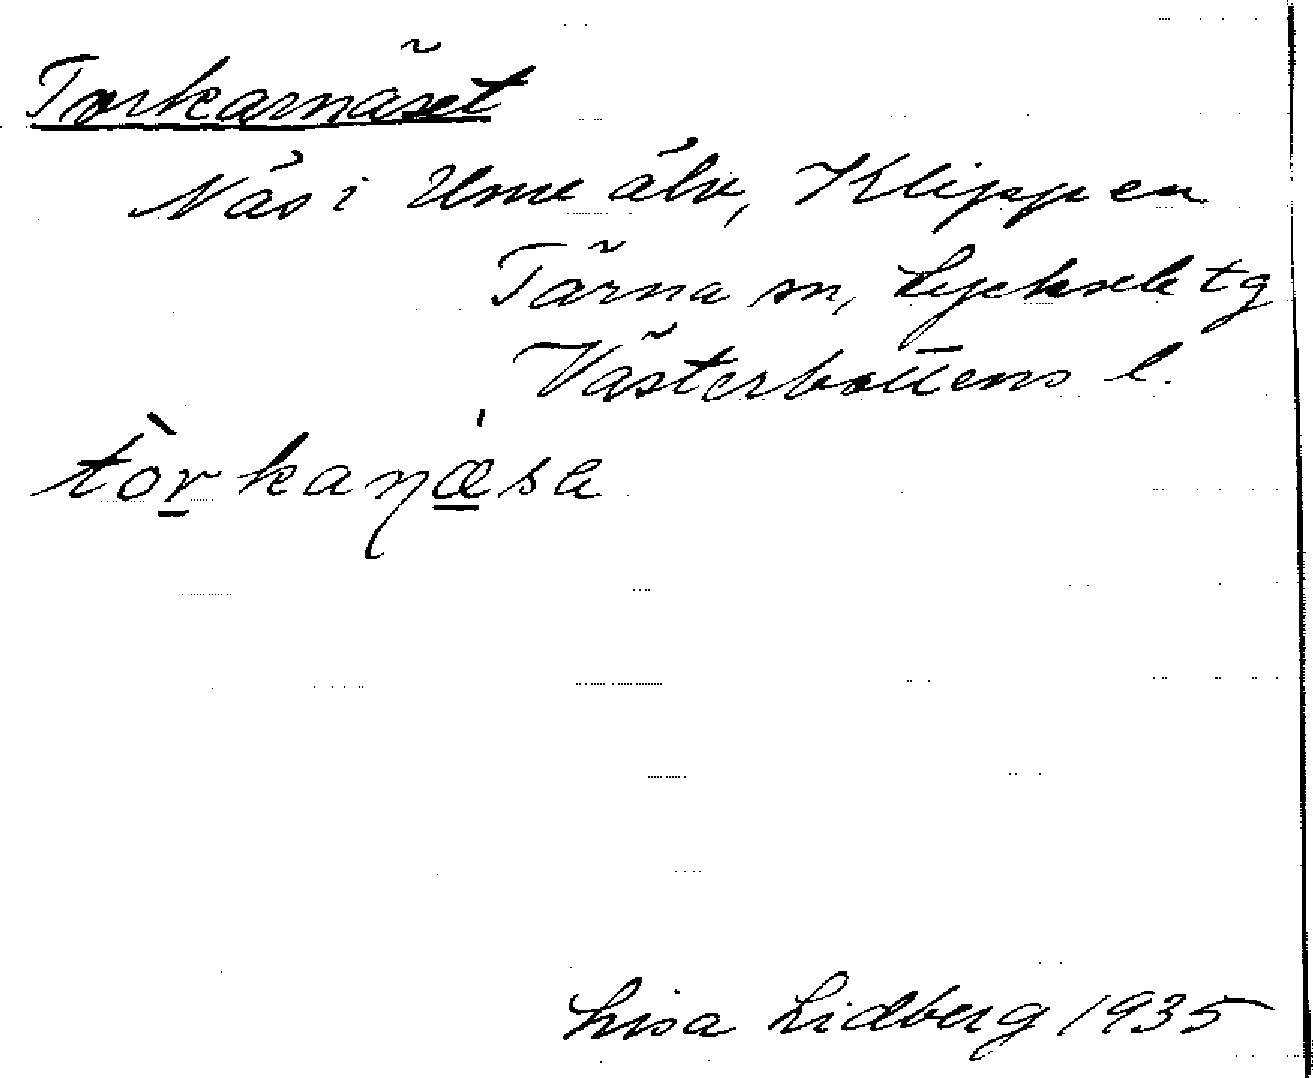 Torkarnäset
Näs i Ume älv, Klippen
Tärna sn, Lycksele tg
Västerbottens l.
tòrkaŋǽsa
Lisa Lidberg 1935